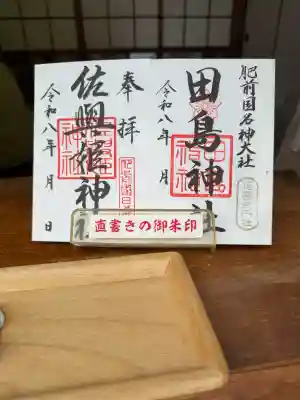 肥前国名神大社
田島神社
令和八年 月
奉拝
佐與姫神社
令和八年 月 日
直書きの御朱印